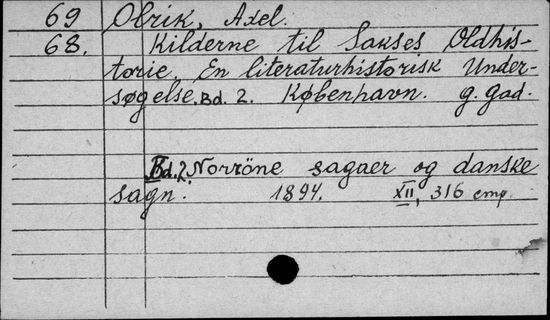 69 Olrik, Axel.
68. Kilderne til Sakses Oldhis-
torie. En literaturhistorisk Under-
søgelse. Bd. 2. København. g. gad.
Bd. 2. Norröne sagaer og danske
sagn. 1894. XII, 316 стр.